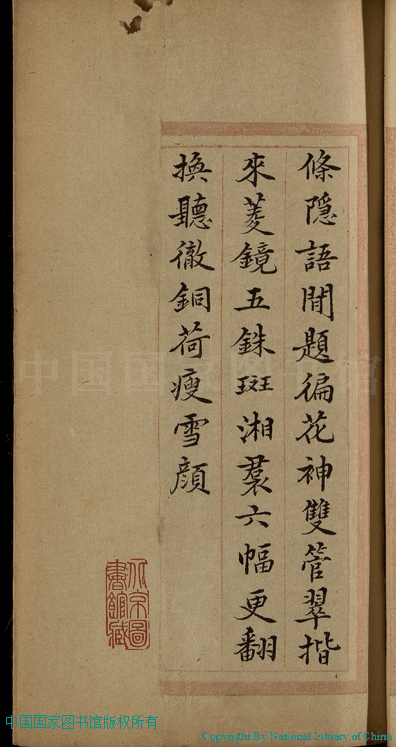 條隱語閒題徧花神雙管翠揩
來菱鏡五銖斑湘裠六幅更翻
換聽徹銅荷瘦雪顔
北京圖書館藏
中国国家图书馆
中国国家图书馆版权所有
Copyright By National Library of China